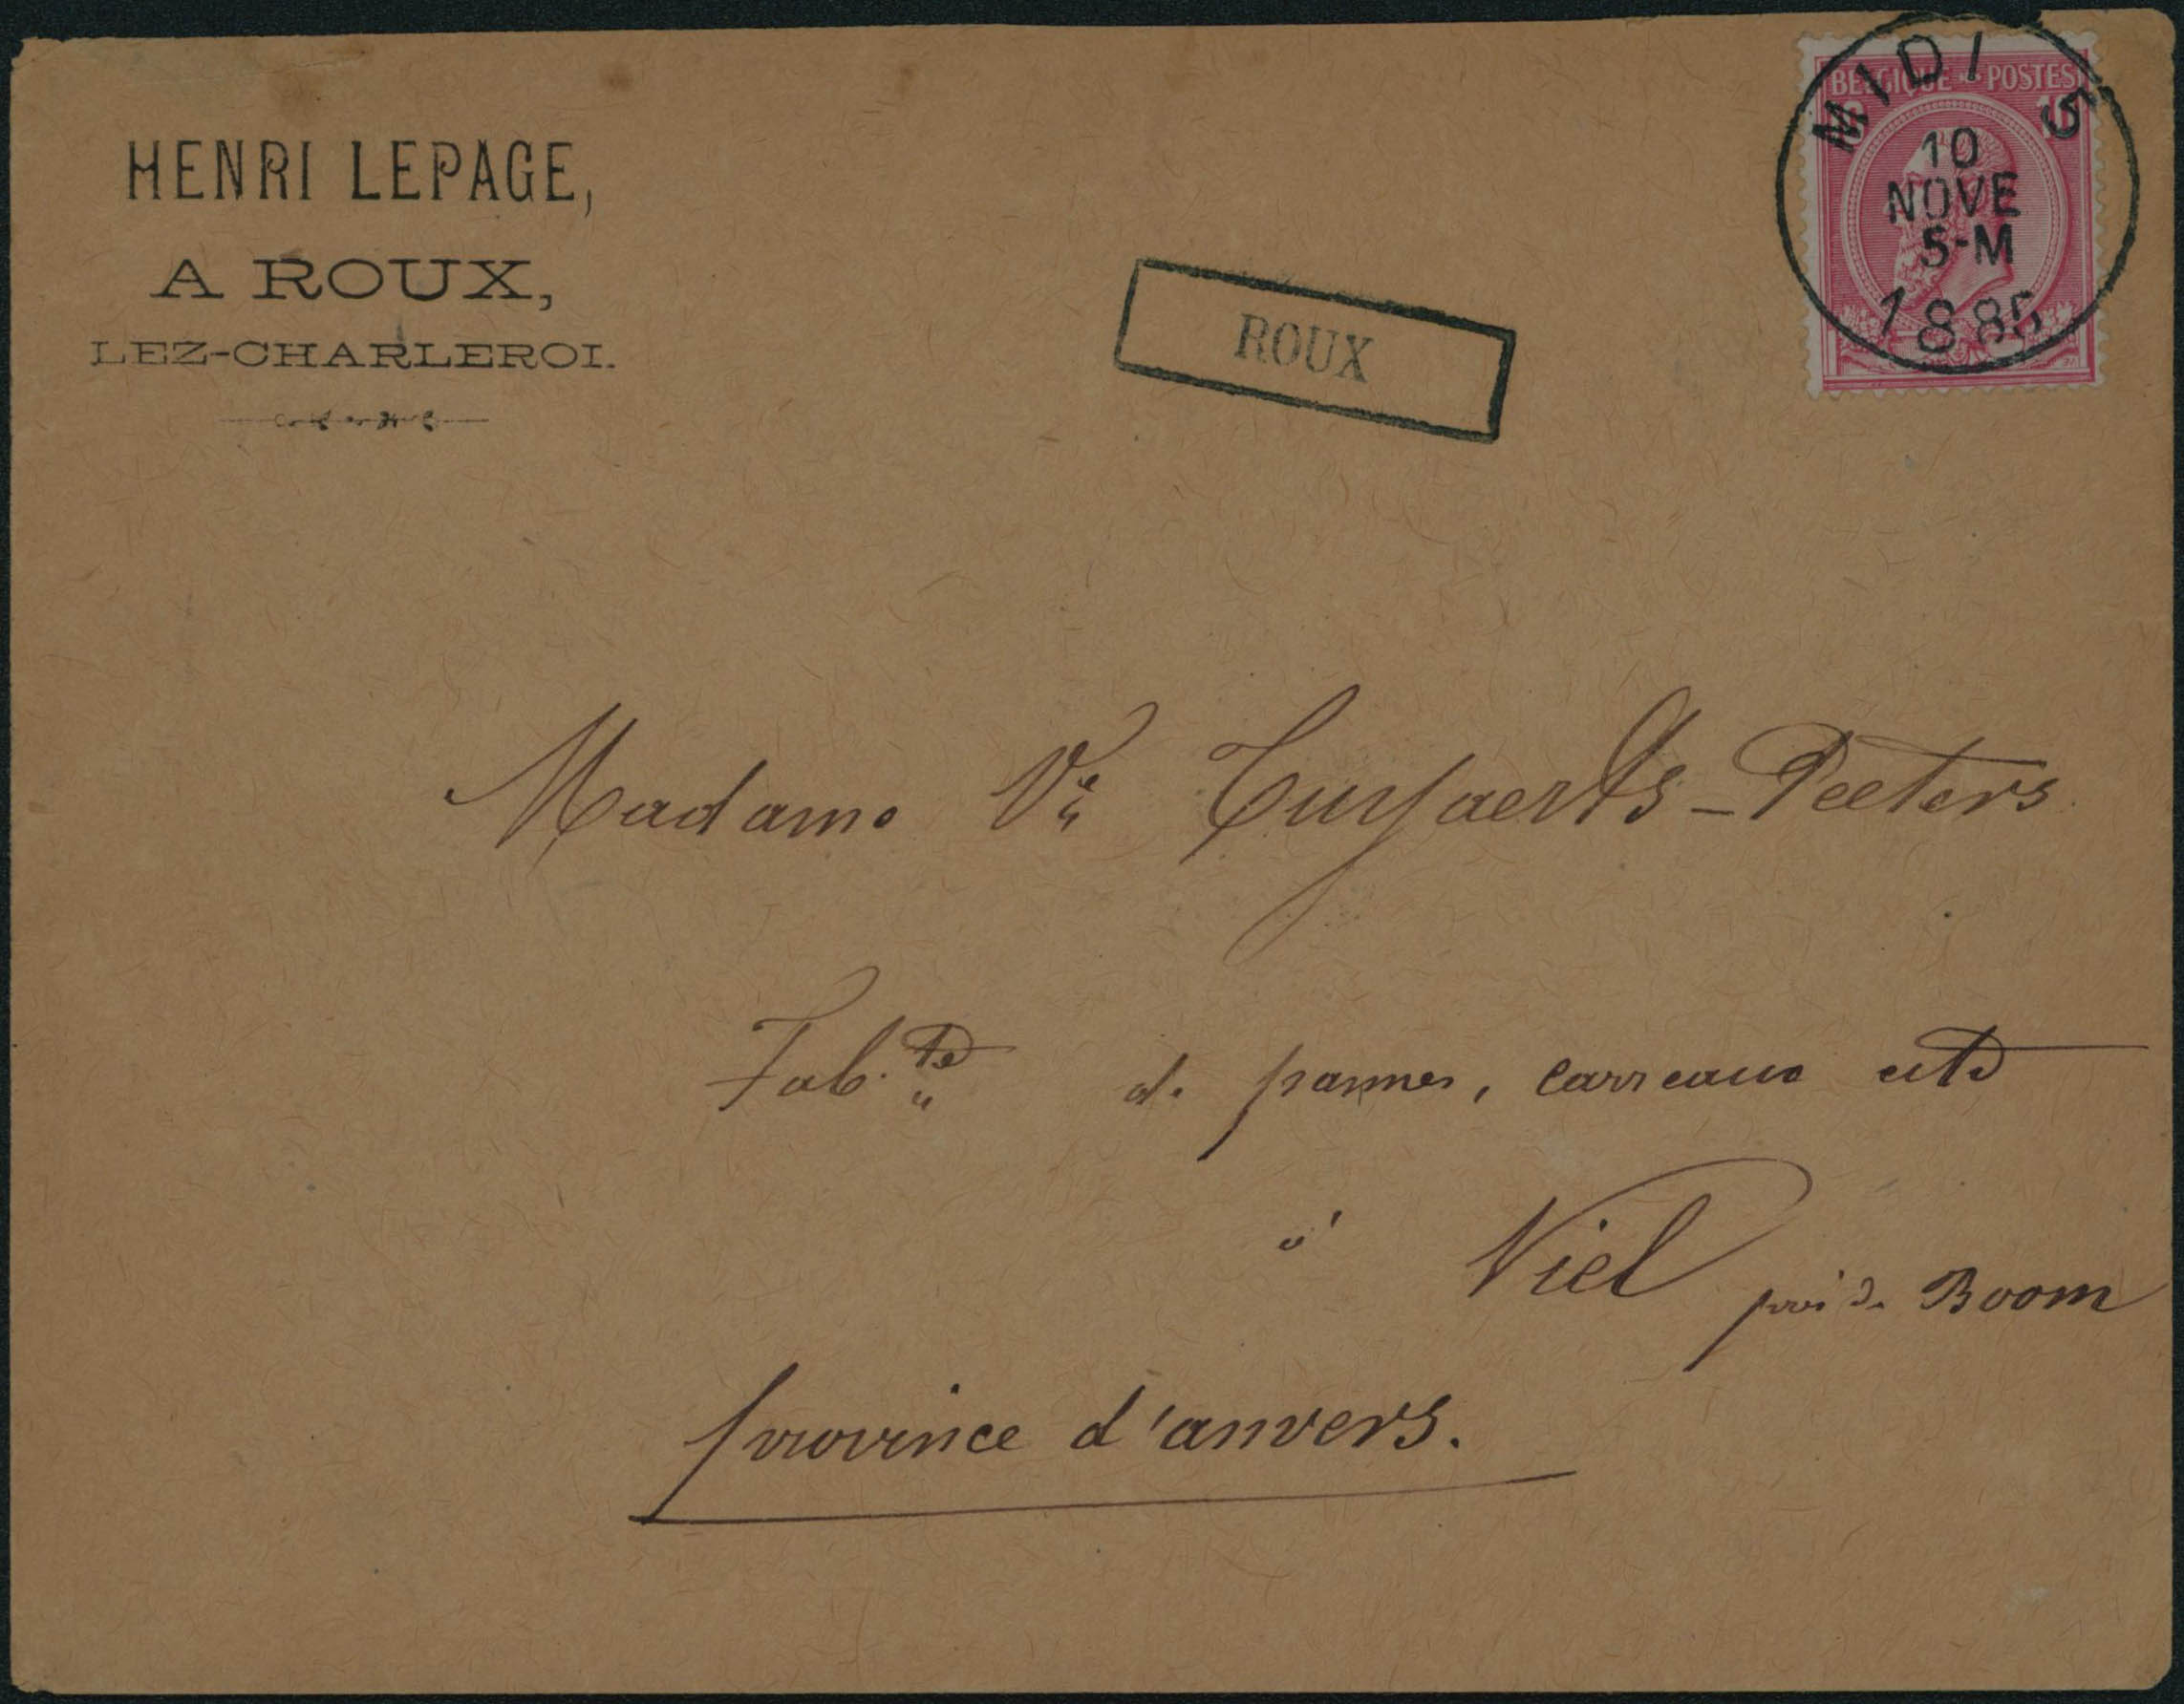 HENRI LEPAGE,
A ROUX,
LEZ-CHARLEROI.
ROUX
BELGIQUE POSTES
10 10
MIDI 5
10
NOVE
5-M
1886
Madame Ve Tuyaerts-Peeters
Fab.te de pannes, carreaux etc
à Niel près de Boom
province d'anvers.